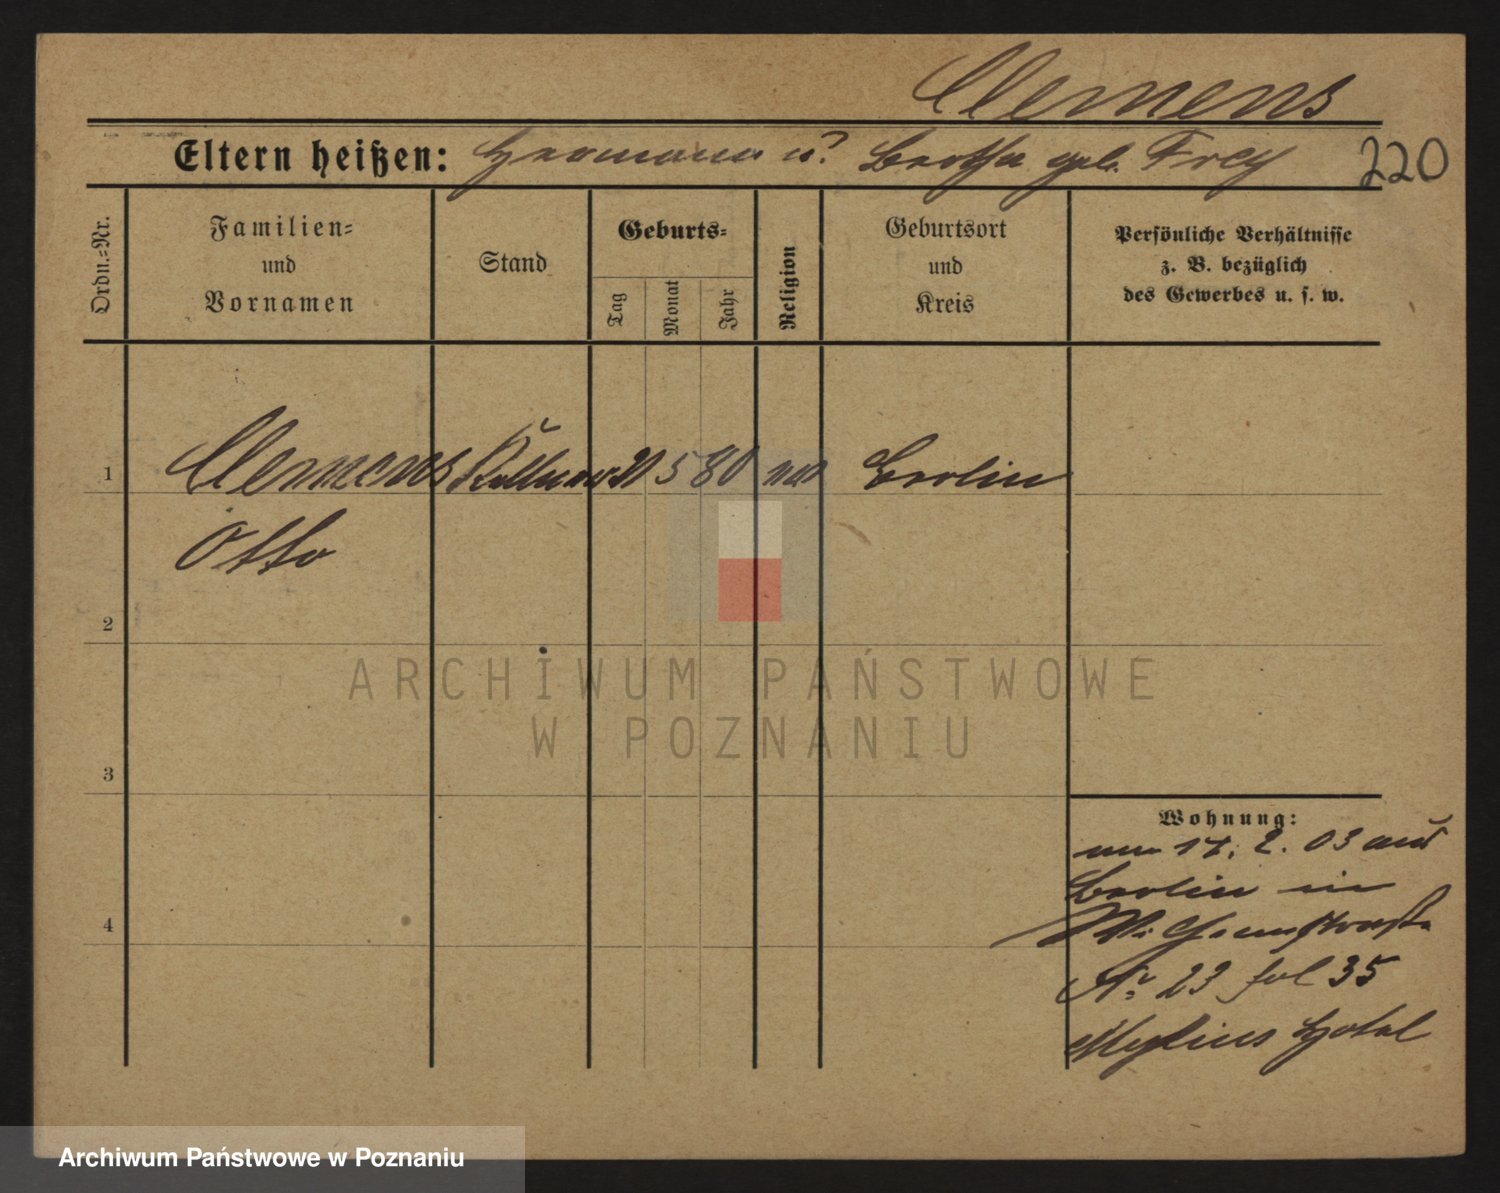 Clemens
Eltern heißen: Hermann u. Bertha geb. Frey
220
Ordn.-Nr.
Familien-
und
Vornamen
Stand
Geburts-
Tag
Monat
Jahr
Religion
Geburtsort
und
Kreis
Persönliche Verhältnisse
z. B. bezüglich
des Gewerbes u. s. w.
1 Clemens Kellner 20 5 80 Berlin
Otto
2
3
4
Wohnung:
17. 2. 03 aus
Berlin in
Wilhelmstraße
Nr 23 fol 35
Mylius Hotel
ARCHIWUM PAŃSTWOWE
W POZNANIU
Archiwum Państwowe w Poznaniu